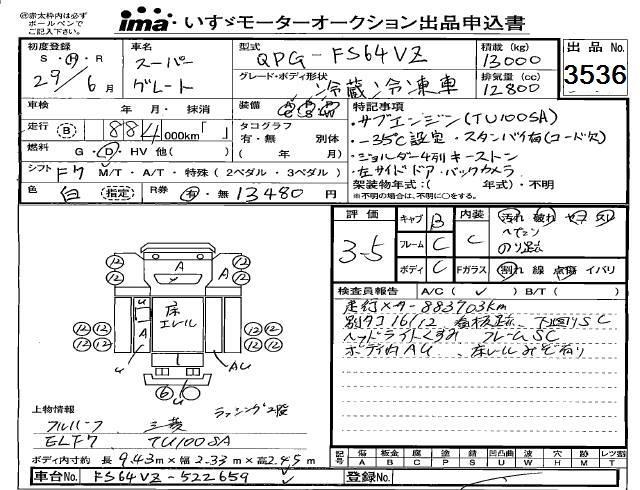 ㊟赤太枠内は必ず
ボールペンで
ご記入下さい。
ima いすゞモーターオークション出品申込書
初度登録
S・Ⓗ・R
29年 6月
車名
スーパー
グレート
型式
QPG-FS64VZ
積載(kg)
13000
出品No.
3536
グレード・ボディ形状
冷蔵冷凍車
排気量(cc)
12800
車検 年・月・抹消
装備
特記事項
・サブエンジン(TU100SA)
・-35℃設定・スタンバイ有(コード欠)
・ジョルダー4列キーストン
・左サイドドア・バックカメラ
走行 Ⓑ 884,000km「 」
タコグラフ
有・無 別体
( 年 月)
燃料 G・Ⓓ・HV 他( )
シフト F7 M/T・A/T・特殊(2ペダル・3ペダル)
架装物年式( 年式)・不明
※不明の場合は、不明に○をする。
色 白 (指定) R券 有・無 13480円
評価
3-5
キャブ B
フレーム C
ボディ C
内装
C
汚れ 破れ
ヘてェン
のり跡
Fガラス 割れ 線 点傷 イバリ
検査員報告 A/C(✓) B/T( )
走行メーター883703km
別タコ16/12 看板跡、下回りSC
ヘッドライトくすみ フレームSC
ボディ内AU、床レールみぞ有り
⑫ ⑫ A A ⑫ ⑫
u
床
エレール
⑫⑫ A ⑫⑫
⑫⑫ ⑫⑫
u AU
⑥ u
上物情報
フルハーフ 三菱
ラッシング2段
ELF7 TU100SA
ボディ内寸約 長9.43m×幅2.33m×高2.45m
記号 傷 板金 腐 塗 錆 凹凸曲 波 穴 跡 レッツ割
A B C P S U W H M T
車台No. FS64VZ-522659
登録No.